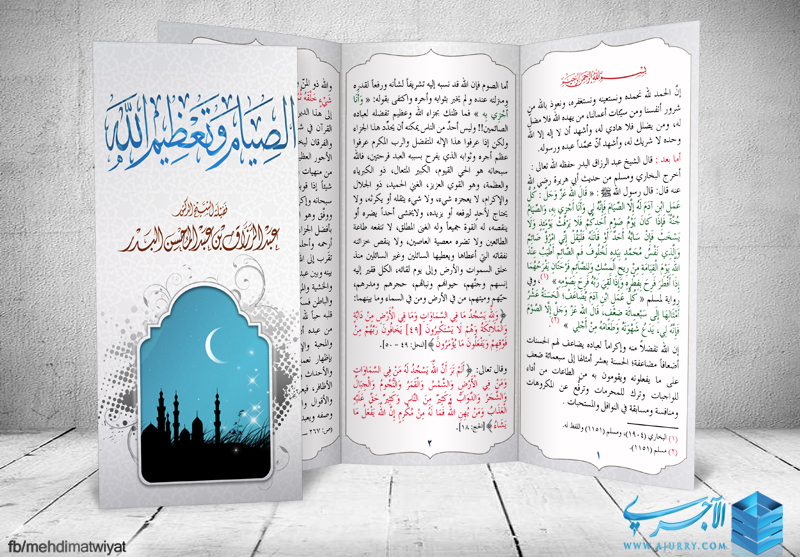 الصيام وتعظيم الله
فضيلة الشيخ الدكتور
عبد الرزاق بن عبد المحسن البدر
بسم الله الرحمن الرحيم
إنَّ الحمد لله نحمده ونستعينه ونستغفره، ونعوذ بالله من
شرور أنفسنا ومن سيّئات أعمالنا، من يهده الله فلا مضلَّ
له، ومن يضلل فلا هادي له، وأشهد أن لا إله إلا الله
وحده لا شريك له، وأشهد أنّ محمَّداً عبده ورسوله.
أما بعد : قال الشيخ عبد الرزاق البدر حفظه الله تعالى :
أخرج البخاري ومسلم من حديث أبي هريرة رضي الله
عنه قال: قال رسول الله ﷺ : « قَالَ اللهُ عَزَّ وَجَلَّ : كُلُّ
عَمَلِ ابْنِ آدَمَ لَهُ إِلَّا الصِّيَامَ فَإِنَّهُ لِي وَأَنَا أَجْزِي بِهِ، وَالصِّيَامُ
جُنَّةٌ فَإِذَا كَانَ يَوْمُ صَوْمِ أَحَدِكُمْ فَلَا يَرْفُثْ يَوْمَئِذٍ وَلَا
يَسْخَبْ فَإِنْ سَابَّهُ أَحَدٌ أَوْ قَاتَلَهُ فَلْيَقُلْ إِنِّي امْرُؤٌ صَائِمٌ
وَالَّذِي نَفْسُ مُحَمَّدٍ بِيَدِهِ لَخُلُوفُ فَمِ الصَّائِمِ أَطْيَبُ عِنْدَ
اللهِ يَوْمَ الْقِيَامَةِ مِنْ رِيحِ الْمِسْكِ وَلِلصَّائِمِ فَرْحَتَانِ يَفْرَحُهُمَا
إِذَا أَفْطَرَ فَرِحَ بِفِطْرِهِ وَإِذَا لَقِيَ رَبَّهُ فَرِحَ بِصَوْمِهِ » (١)، وفي
رواية لمسلم « كُلُّ عَمَلِ ابْنِ آدَمَ يُضَاعَفُ، الْحَسَنَةُ عَشْرُ
أَمْثَالِهَا إِلَى سَبْعِمِائَةِ ضِعْفٍ، قَالَ اللهُ عَزَّ وَجَلَّ إِلَّا الصَّوْمَ
فَإِنَّهُ لِي، يَدَعُ شَهْوَتَهُ وَطَعَامَهُ مِنْ أَجْلِي » (٢)
إن الله تفضلاً منه وإكراماً لعباده يضاعف لهم الحسنات
أضعافاً مضاعفة؛ الحسنة بعشر أمثالها إلى سبعمائة ضعف
على ما يفعلونه ويقومون به من الطاعات من أداء
للواجبات وترك للمحرمات وترفّع عن المكروهات
ومنافسة ومسابقة في النوافل والمستحبات .
(١) البخاري (١٩٠٤)، ومسلم (١١٥١) واللفظ له.
(٢) مسلم (١١٥١).
١
أما الصوم فإن الله قد نسبه إليه تشريفاً لشأنه ورفعاً لقدره
ومنزلته عنده ولم يخبر بثوابه وأجره واكتفى بقوله: « وَأَنَا
أَجْزِي بِهِ » فما ظنك بجزاء الله وعظيم تفضله لعباده
الصائمين!! وليس أحدٌ من الناس يمكنه أن يحدِّد هذا الجزاء
ولكن إذا عرفوا هذا الإله المتفضل والرب المكرم عرفوا
عظم أجره وثوابه الذي يفرح بسببه العبد فرحتين، فالله
سبحانه هو الحي القيوم، الكبير المتعال، ذو الكبرياء
والعظمة، وهو القوي العزيز، الغني الحميد، ذو الجلال
والإكرام، لا يعجزه شيء، ولا شيء يثقله أو يكرثه، ولا
يحتاج لأحد ليرفعه أو يزيده، ولا يخشى أحداً يضره أو
ينقصه، له القوة جميعاً وله الغنى المطلق، لا تنفعه طاعة
الطائعين ولا تضره معصية العاصين، ولا ينقص خزائنه
نفقاته التي أعطاها ويعطيها السائلين وغير السائلين منذ
خلق السموات والأرض وإلى يوم لقائه، الكل فقير إليه
إنسهم وجنّهم، حيوانهم ونباتهم، حجرهم ومدرهم،
حيّهم وميتهم، من في الأرض ومن في السماء وما بينهما:
﴿ وَلِلَّهِ يَسْجُدُ مَا فِي السَّمَاوَاتِ وَمَا فِي الْأَرْضِ مِنْ دَابَّةٍ
وَالْمَلَائِكَةُ وَهُمْ لَا يَسْتَكْبِرُونَ [٤٩] يَخَافُونَ رَبَّهُمْ مِنْ
فَوْقِهِمْ وَيَفْعَلُونَ مَا يُؤْمَرُونَ ﴾ [النحل: ٤٩ - ٥٠].
وقال تعالى: ﴿ أَلَمْ تَرَ أَنَّ اللَّهَ يَسْجُدُ لَهُ مَنْ فِي السَّمَاوَاتِ
وَمَنْ فِي الْأَرْضِ وَالشَّمْسُ وَالْقَمَرُ وَالنُّجُومُ وَالْجِبَالُ
وَالشَّجَرُ وَالدَّوَابُّ وَكَثِيرٌ مِنَ النَّاسِ وَكَثِيرٌ حَقَّ عَلَيْهِ
الْعَذَابُ وَمَنْ يُهِنِ اللَّهُ فَمَا لَهُ مِنْ مُكْرِمٍ إِنَّ اللَّهَ يَفْعَلُ مَا
يَشَاءُ ﴾ [الحج: ١٨].
٢
fb/mehdimatwiyat
الآجري
WWW.AJURRY.COM